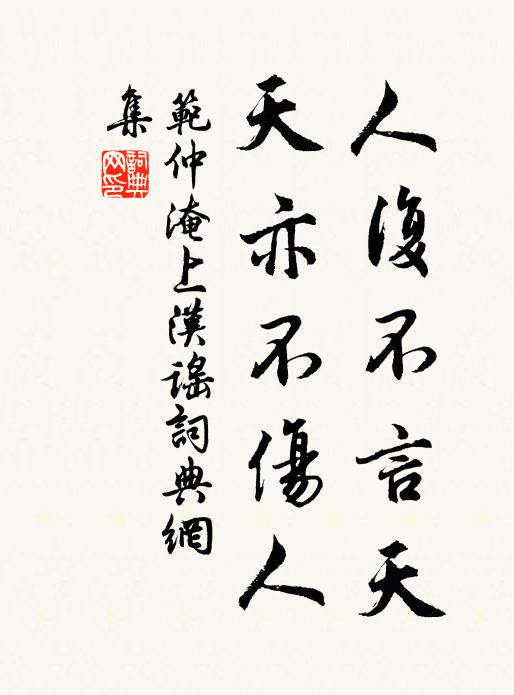 人復不言天
天亦不傷人
範仲淹上漢謠詞典網
集
詞典
网印